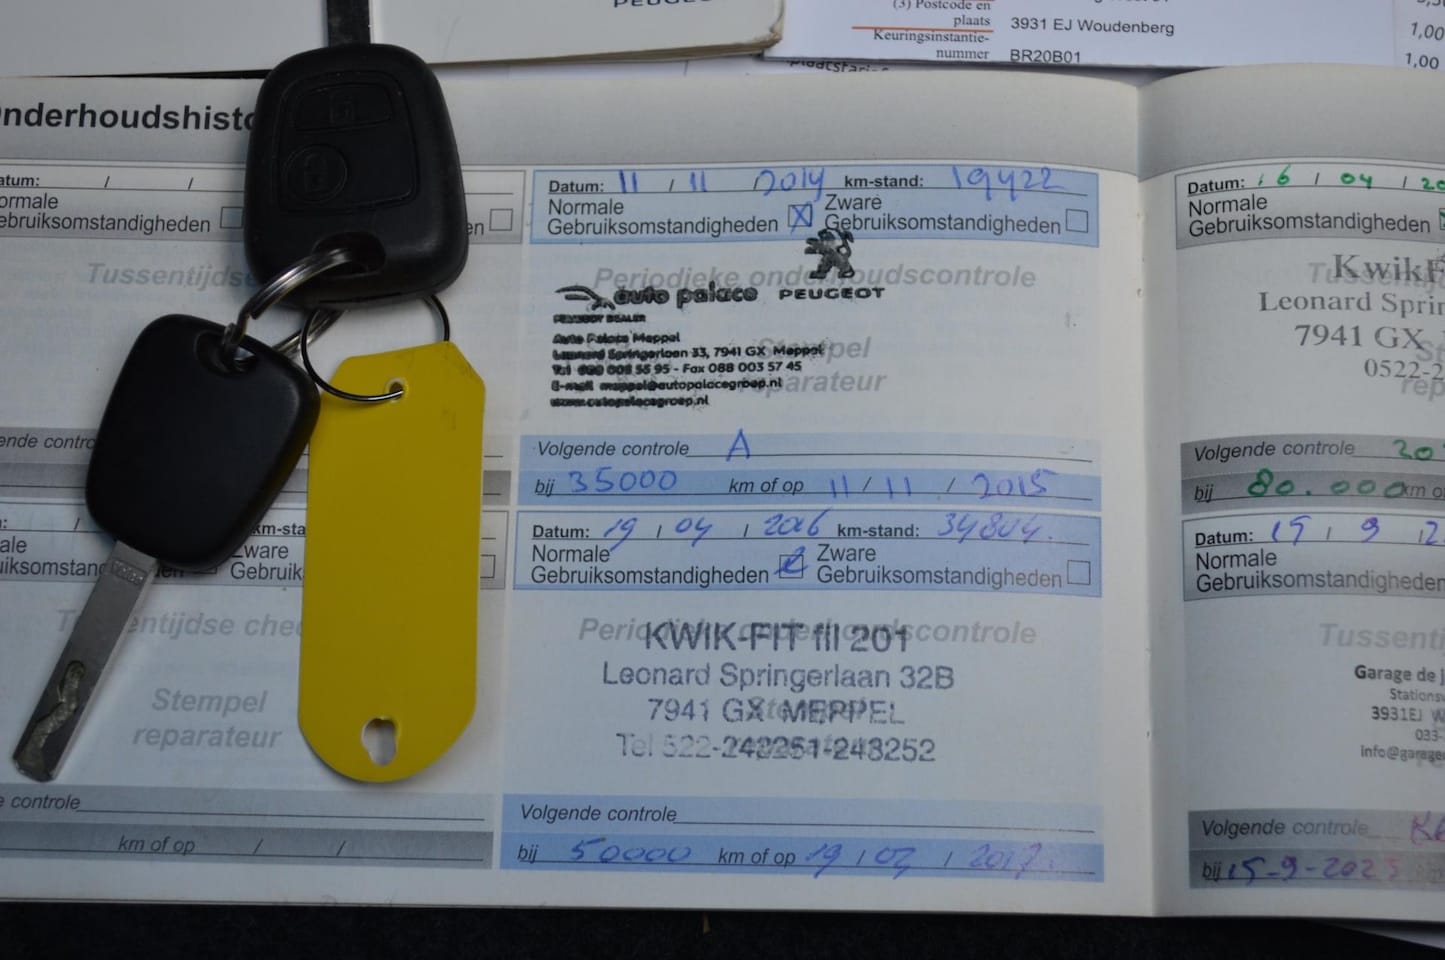 PEUGEOT
(3) Postcode en
plaats
3931 EJ Woudenberg
Keuringsinstantie-
nummer
BR20B01
1,00
1,00
Datum: / /
Gebruiksomstandigheden
Tussentijdse
Datum: 11 / 11 / 2014 km-stand: 19422
Normale
Gebruiksomstandigheden X
Zware
Gebruiksomstandigheden
Periodieke onderhoudscontrole
auto palace PEUGEOT
PEUGEOT DEALER
Auto Palace Meppel
Leonard Springerlaan 33, 7941 GX Meppel
Fax 088 003 57 45
E-mail meppel@autopalacegroep.nl
www.autopalacegroep.nl
Stempel
reparateur
Volgende controle A
bij 35000 km of op 11 / 11 / 2015
Datum: 19 / 04 / 2016 km-stand: 34804
Normale
Gebruiksomstandigheden
Zware
Gebruiksomstandigheden
Periodieke onderhoudscontrole
KWIK-FIT fil 201
Leonard Springerlaan 32B
7941 GX MEPPEL
Tel 522-242251-243252
Volgende controle
bij 50000 km of op 19 / 2017
Zware
Stempel
reparateur
km of op / /
Datum: 16 / 04 / 20
Normale
Gebruiksomstandigheden
KwikF
Leonard Sprin
7941 GX
0522-2
Volgende controle 20
bij 80.000 km o
Datum: 15 / 9 / 2
Normale
Gebruiksomstandigheden
Tussenti
Garage de j
Stationsw
3931EJ W
033-
info@garage
Volgende controle
bij 15-9-2023